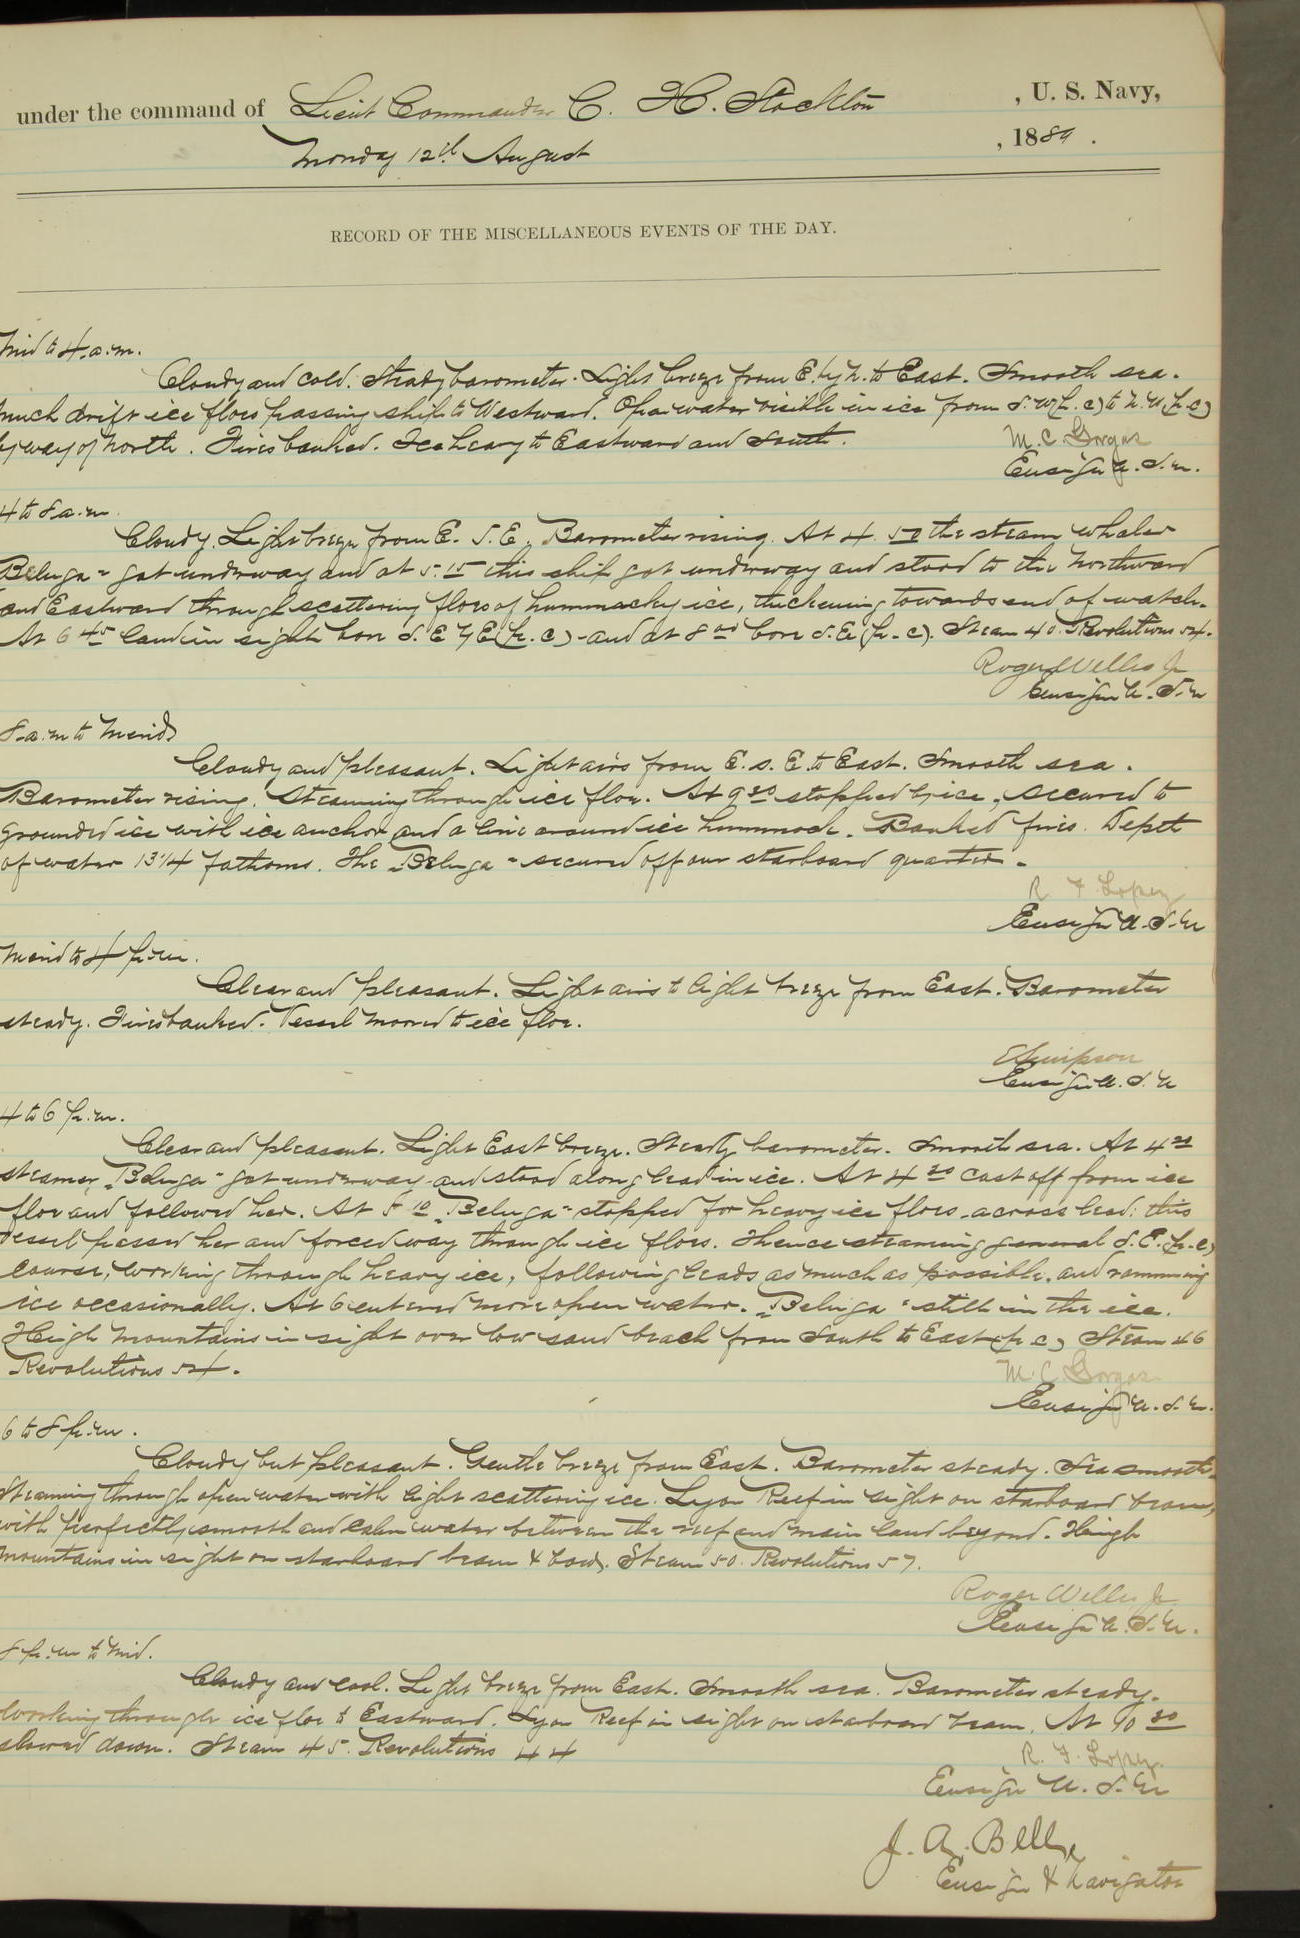 under the command of Lieut Commander C. H. Stockton , U. S. Navy,
Monday 12th August , 1889 .
RECORD OF THE MISCELLANEOUS EVENTS OF THE DAY.
Mid to 4 a.m.
Cloudy and cold. Steady barometer. Light breeze from E. by N. to East. Smooth sea.
Much drift ice floes passing ship to Westward. Open water visible in ice from S.W. (p.c) to N.W (p.c)
by way of North. Fires banked. Ice heavy to Eastward and South.
M. C. Gorgas
Ensign U.S.N.
4 to 8 a.m.
Cloudy. Light breeze from E. S. E. Barometer rising. At 4.50 the steam whaler
"Beluga" got underway and at 5.15 this ship got underway and stood to the Northward
and Eastward through scattering floes of hummocky ice, thickening towards end of watch.
At 6 45 land in sight bore S. E by E (p.c) and at 8 00 bore S.E (p.c). Steam 40. Revolutions 54.
Roger Welles Jr
Ensign U.S.N
8 a.m to Merid
Cloudy and pleasant. Light airs from E. S. E. to East. Smooth sea.
Barometer rising. Steaming through ice floe. At 9 30 stopped by ice, secured to
grounded ice with ice anchor and a line around ice hummock. Banked fires. Depth
of water 13 1/4 fathoms. The "Beluga" secured off our starboard quarter.
R F Lopez
Ensign U.S.N
Merid to 4 p.m.
Clear and pleasant. Light airs to light breeze from East. Barometer
steady. Fires banked. Vessel moored to ice floe.
E Simpson
Ensign U.S.N
4 to 6 p.m.
Clear and pleasant. Light East breeze. Steady barometer. Smooth sea. At 4 20
steamer "Beluga" got underway and stood along lead in ice. At 4 30 cast off from ice
floe and followed her. At 5 10 "Beluga" stopped for heavy ice floes across lead: this
vessel passed her and forced way through ice floes. Thence steaming general S.E. (p.c)
course, working through heavy ice, following leads as much as possible, and ramming
ice occasionally. At 6 entered more open water. "Beluga" still in the ice.
High mountains in sight over low sand beach from South to East (p.c) Steam 46
Revolutions 54.
M. C. Gorgas
Ensign U.S.N.
6 to 8 p.m.
Cloudy but pleasant. Gentle breeze from East. Barometer steady. Sea smooth.
Steaming through open water with light scattering ice. Lyon Reef in sight on starboard beam,
with perfectly smooth and calm water between the reef and main land beyond. High
mountains in sight on starboard beam & bow. Steam 50. Revolutions 57.
Roger Welles Jr
Ensign U.S.N.
8 p.m to Mid.
Cloudy and cool. Light breeze from East. Smooth sea. Barometer steady.
Working through ice floe to Eastward. Lyon Reef in sight on starboard beam. At 10 30
slowed down. Steam 45. Revolutions 44
R. F. Lopez
Ensign U.S.N
J. A. Bell,
Ensign & Navigator